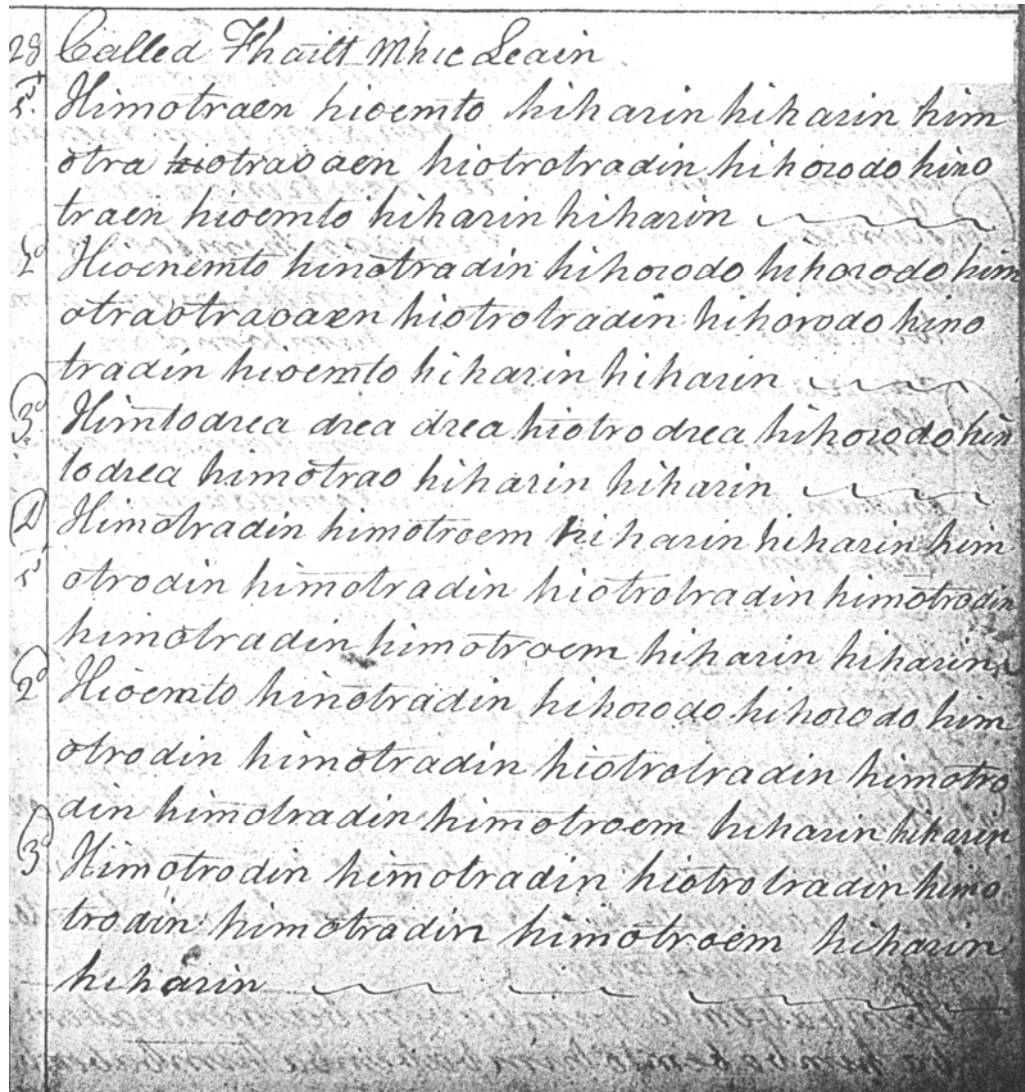 28 Called Fhailt Mhic Leain
1st Himotraen hioemto hiharin hiharin him
otra hiotraoaen hiotrotradin hihorodo hino
traen hioemto hiharin hiharin
2d Hioenemto hinotradin hihorodo hihorodo him
otraotraoaen hiotrotradin hihorodo hino
tradin hioemto hiharin hiharin
3d Himtodrea drea drea hiotrodrea hihorodo hin
todrea himotrao hiharin hiharin
D Himotradin himotroem hiharin hiharin him
1st otrodin himotradin hiotrotradin himotrodin
himotradin himotroem hiharin hiharin
2d Hioemto hinotradin hihorodo hihorodo him
otrodin himotradin hiotrotradin himotro
din himotradin himotroem hiharin hiharin
3d Himotrodin himotradin hiotrotradin himo
trodin himotradin himotroem hiharin
hiharin